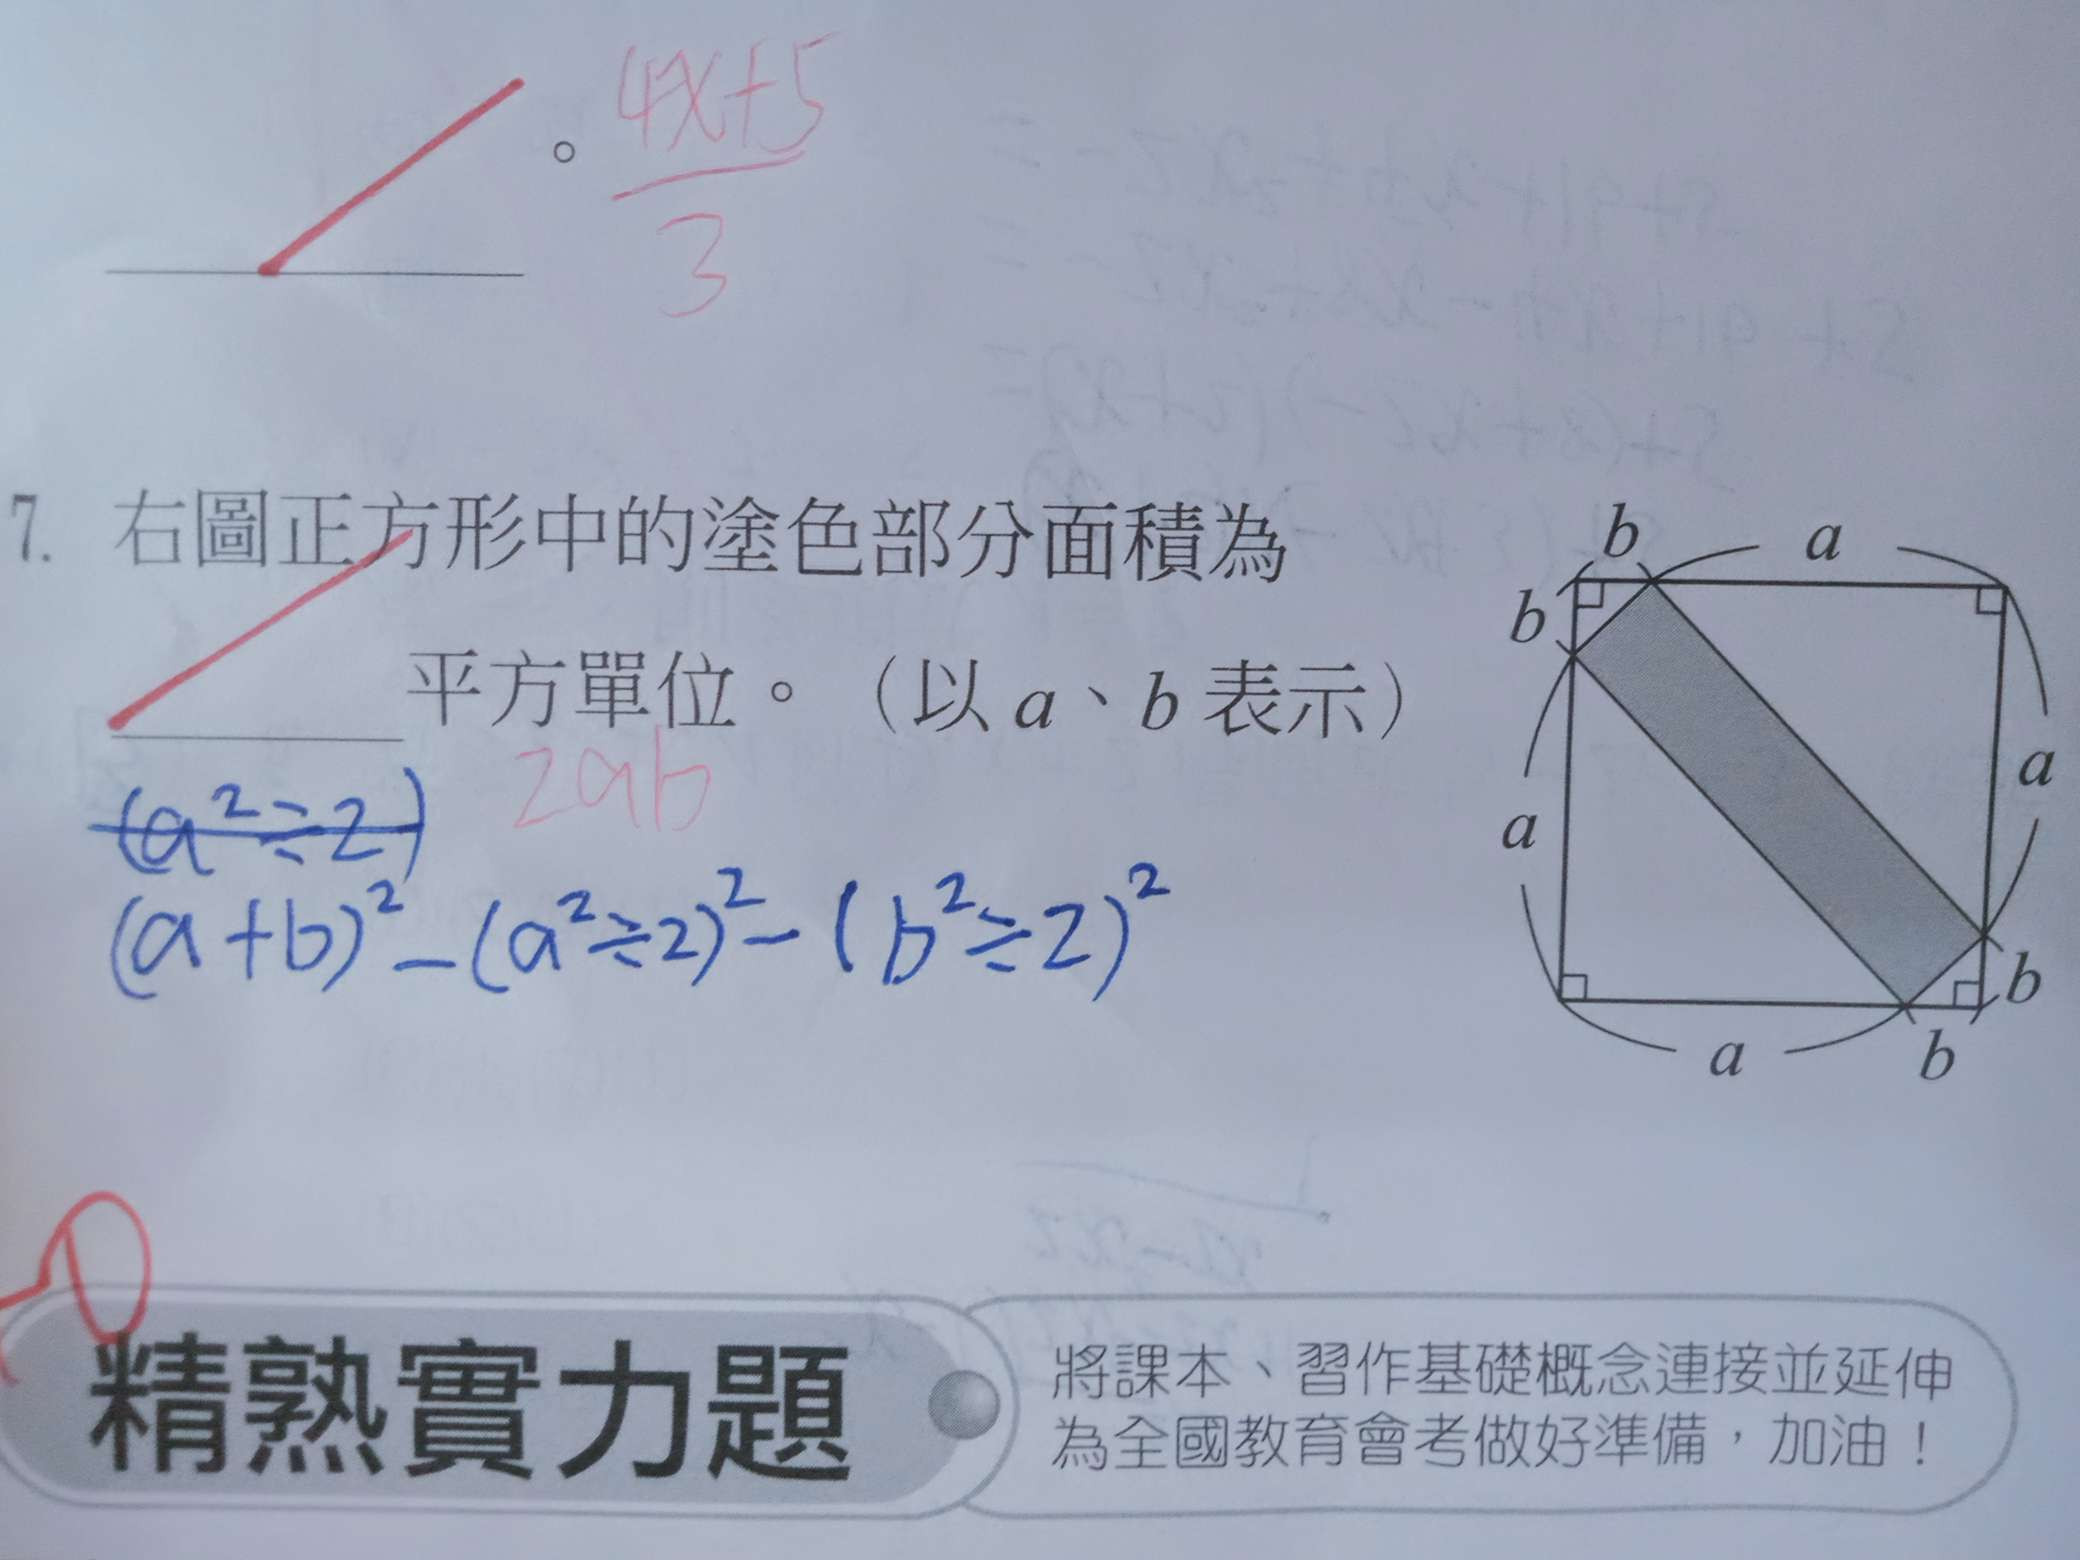 。 4x+5
3
7. 右圖正方形中的塗色部分面積為
平方單位。（以 a、b 表示）
2ab
(a²÷2)
(a+b)²-(a²÷2)²-(b²÷2)²
b a
b
a
a
b
a b
精熟實力題
將課本、習作基礎概念連接並延伸
為全國教育會考做好準備，加油！